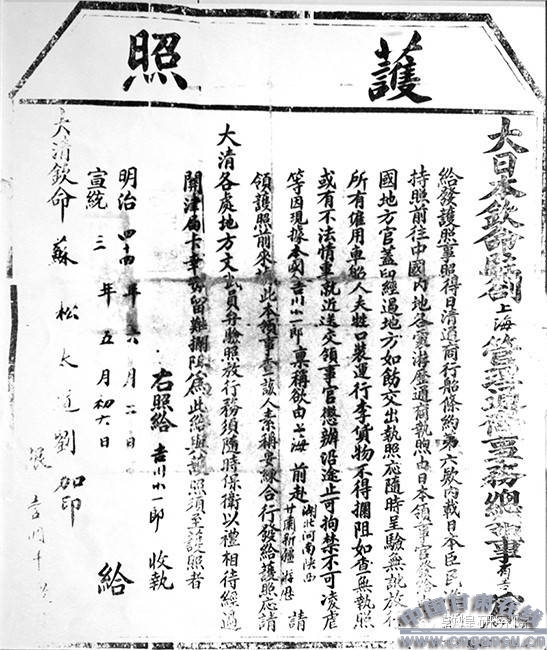 護照
大日本欽命駐劄上海管理通商事務總領事有吉
給發護照事照得日清通商行船條約第六款內載日本臣民准
持照前往中國內地各處游歷通商執照由日本領事官發給
國地方官蓋印經過地方如飭交出執照應隨時呈驗無訛放行
所有僱用車船人夫牲口裝運行李貨物不得攔阻如查無執照
或有不法情事就近送交領事官懲辦沿途止可拘禁不可凌虐
等因現據本國吉川小一郎稟稱欲由上海前赴湖北河南陝西甘肅新疆游歷請
領護照前來此本領事查該人素稱妥練合行發給護照應請
大清各處地方文武員弁驗照放行務須隨時保衛以禮相待經過
關津局卡幸勿留難攔阻為此給與護照須至護照者
右照給吉川小一郎收執
明治四十四年六月二日
宣統三年五月初六日給
大清欽命蘇松太道劉加印
中国甘肃在线
www.gansu.cn
敦煌研究院